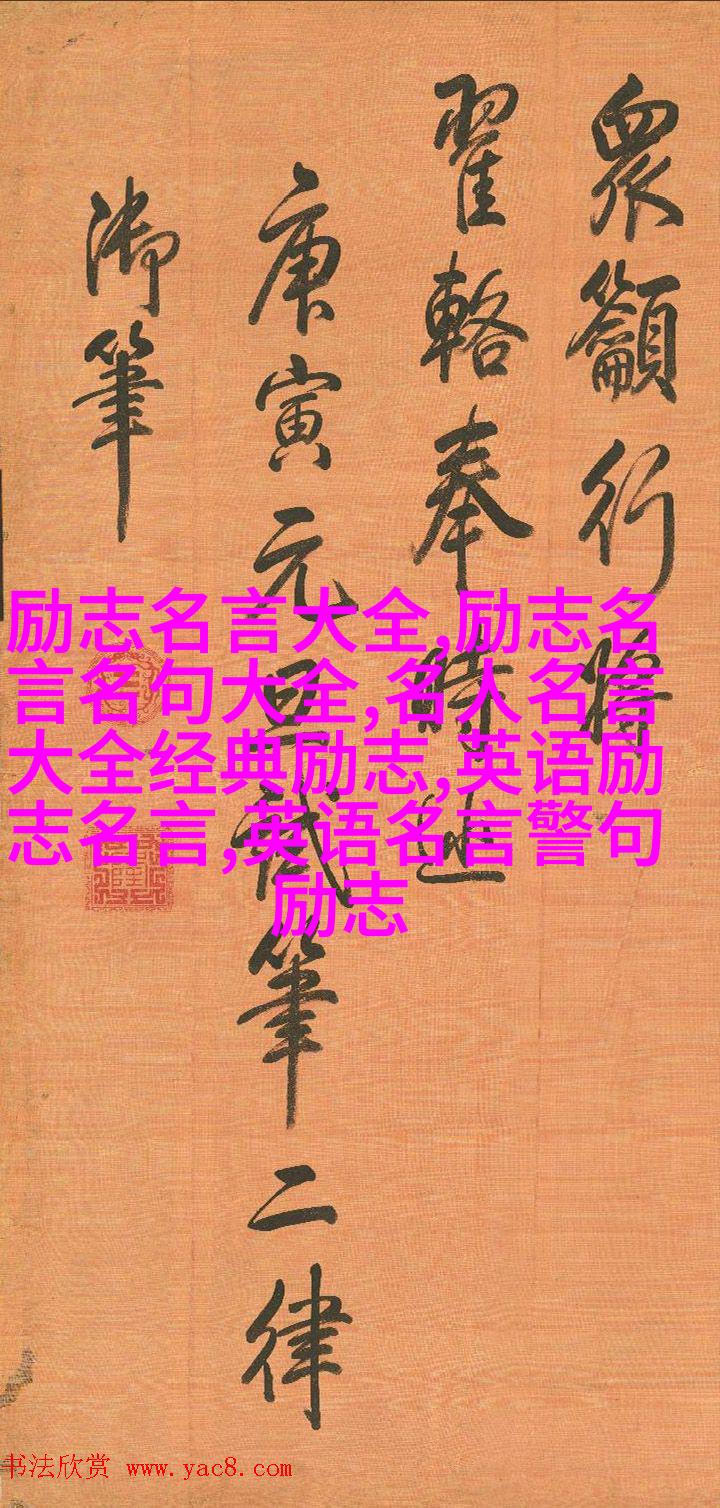 衆籲行將
翟輅奉時巡
庚寅元旦試筆二律
御筆
励志名言大全,励志名
言名句大全,名人名言
大全经典励志,英语励
志名言,英语名言警句
励志
书法欣赏 www.yac8.com